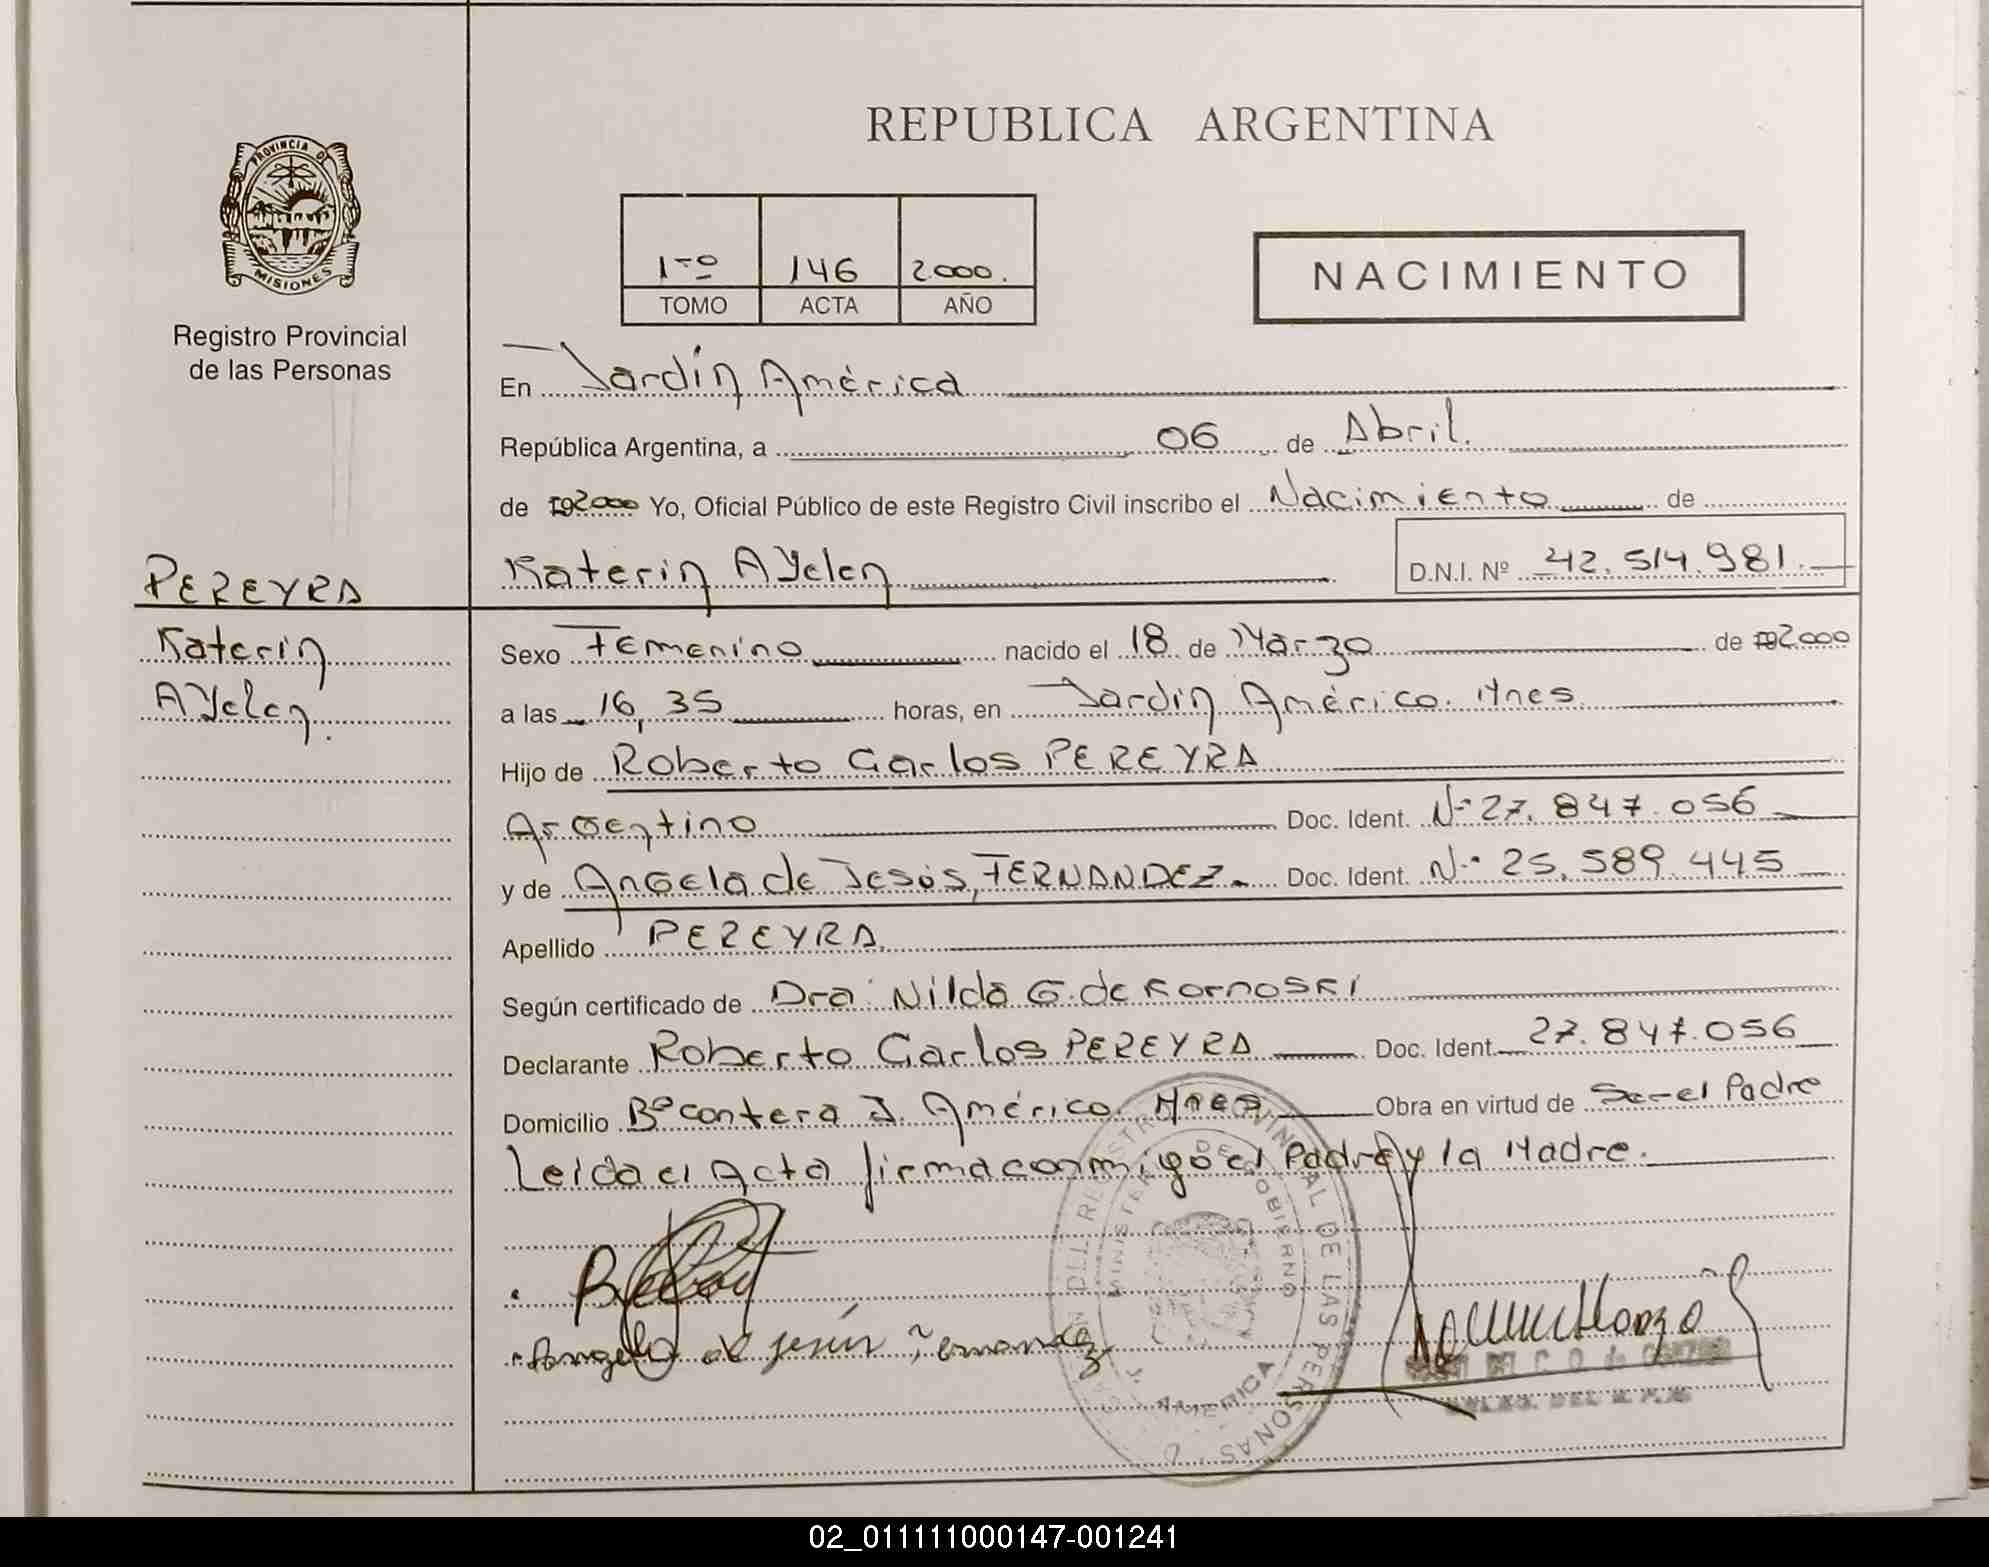 REPUBLICA ARGENTINA
PROVINCIA DE
MISIONES
Registro Provincial
de las Personas
1ro 146 2000.
TOMO ACTA AÑO
NACIMIENTO
En Jardín América
República Argentina, a 06 de Abril.
de 2000 Yo, Oficial Público de este Registro Civil inscribo el Nacimiento de
PEREYRA
Katerin AYelen D.N.I. Nº 42.514.981.
Katerin
AYelen.
Sexo Femenino nacido el 18 de Marzo de 2000
a las 16,35 horas, en Jardín América. Mnes.
Hijo de Roberto Carlos PEREYRA
Argentino Doc. Ident. Nº 27.847.056
y de Angela de Jesús, FERNANDEZ Doc. Ident. Nº 25.589.445
Apellido PEREYRA
Según certificado de Dra. Nilda G. de Kornoski
Declarante Roberto Carlos PEREYRA Doc. Ident. 27.847.056
Domicilio Bº cantera J. América. Mnes Obra en virtud de Ser el Padre
Leida el Acta firma conmigo el Padre y la Madre.
Angela de Jesús Fernandez
REGISTRO PROVINCIAL DE LAS PERSONAS
MINISTERIO DE GOBIERNO
AMERICA
02_011111000147-001241